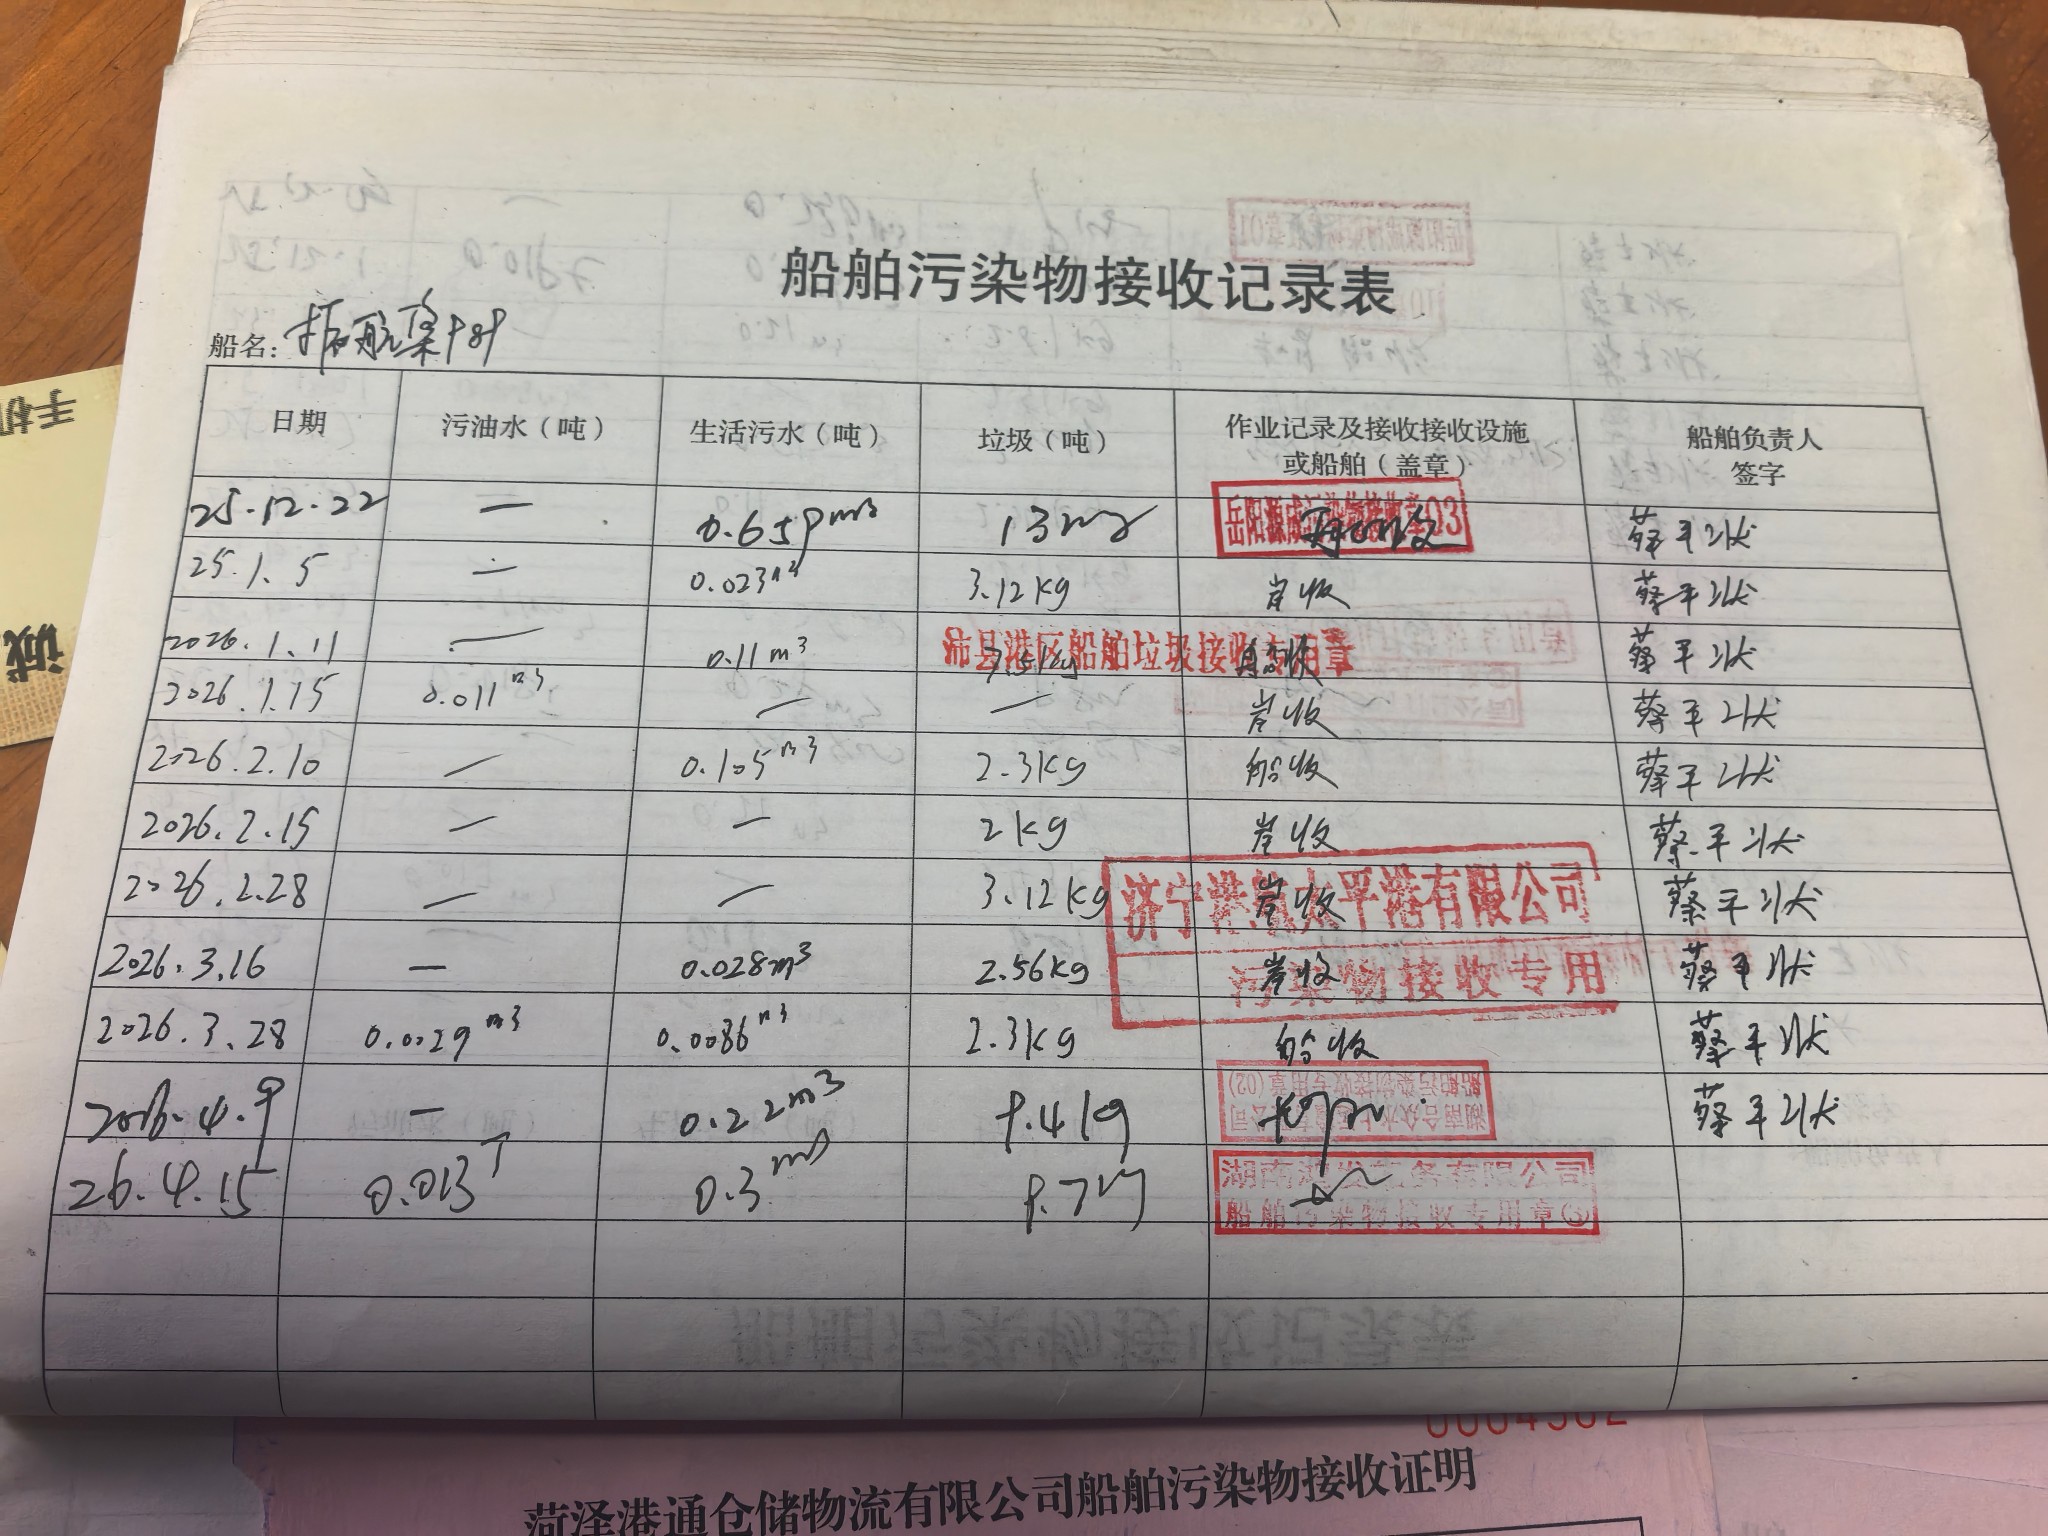 船舶污染物接收记录表
船名：
日期 污油水（吨） 生活污水（吨） 垃圾（吨） 作业记录及接收接收设施或船舶（盖章） 船舶负责人签字
25.12.22 — 0.659m3 岳阳源成污染物接收章03 蔡平
25.1.5 — 0.023m3 3.12kg 岸收 蔡平
2026.1.11 — 0.11m3 沛县港区船舶垃圾接收专用章 蔡平
2026.1.15 0.011m3 — — 岸收 蔡平
2026.2.10 — 0.105m3 2.3kg 船收 蔡平
2026.2.15 — — 2kg 岸收 蔡平
2026.2.28 — — 3.12kg 岸收 蔡平
济宁港航太平港有限公司
2026.3.16 — 0.028m3 2.56kg 岸收 蔡平
污染物接收专用
2026.3.28 0.0029m3 0.0086m3 2.3kg 船收 蔡平
2026.4.9 — 0.22m3 9.4kg 蔡平
船舶污染物接收专用章(02)
26.4.15 0.013T 0.3m3
船舶污染物接收专用章
菏泽港通仓储物流有限公司船舶污染物接收证明
手机
诚